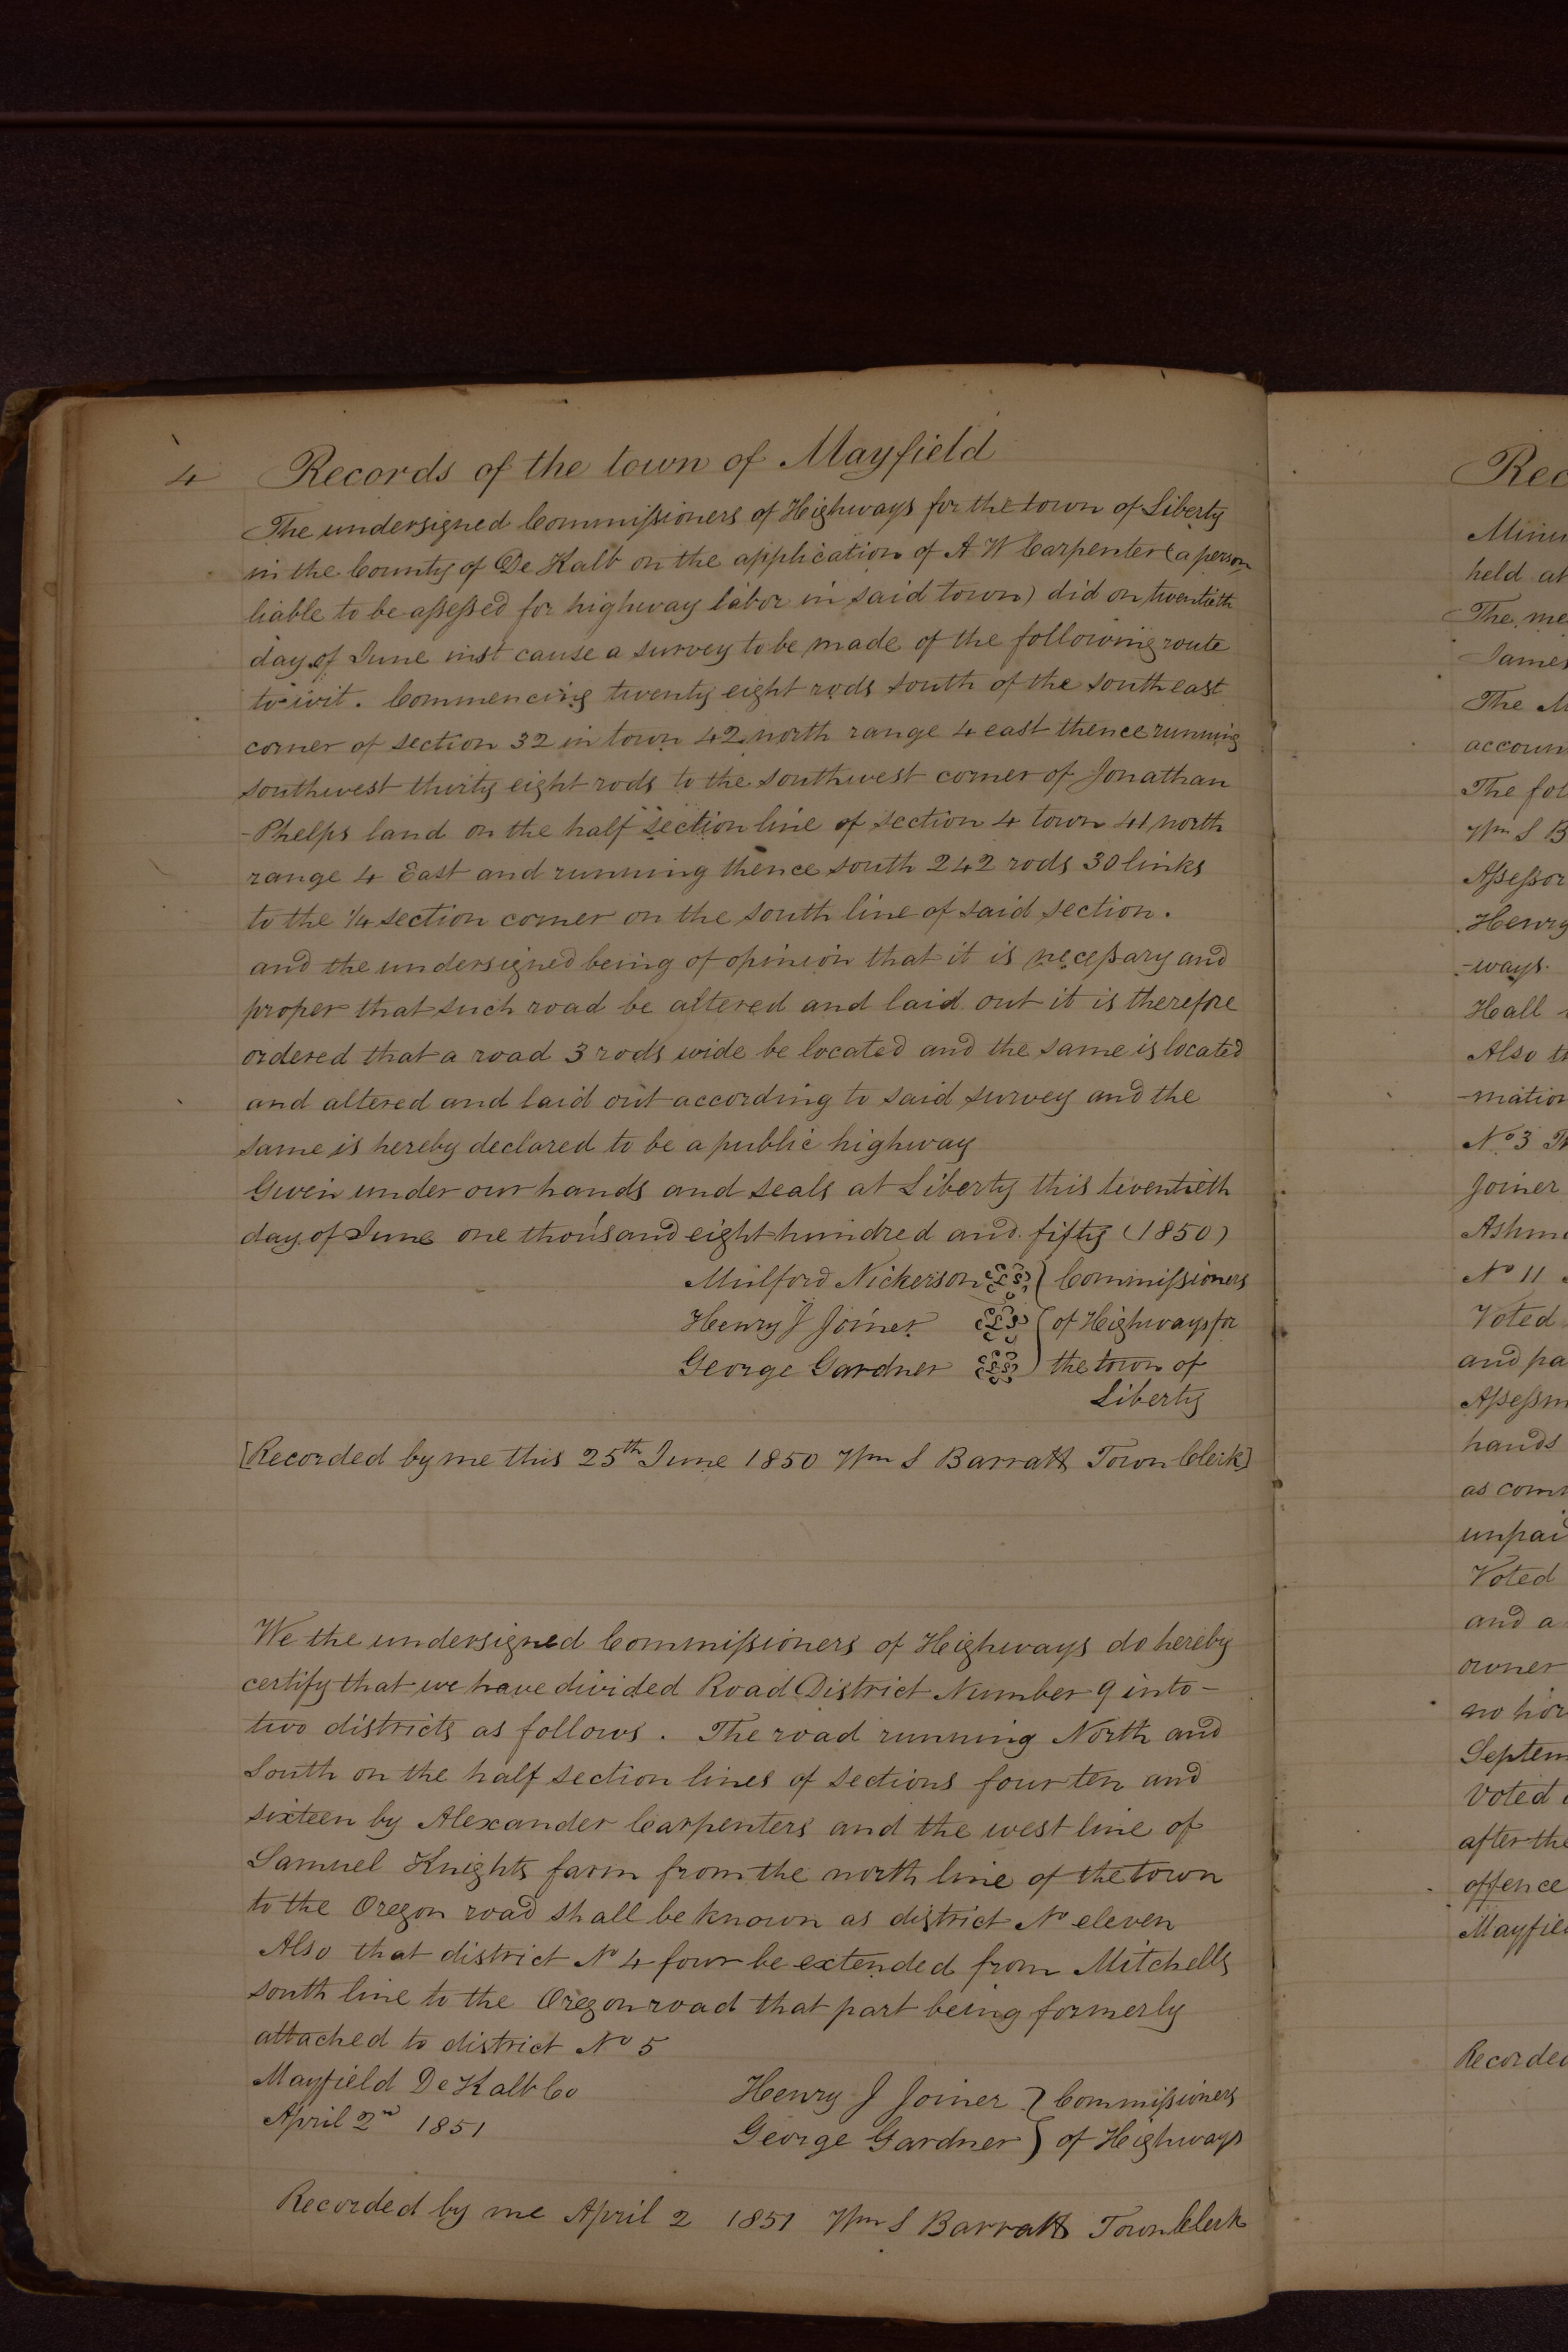 4 Records of the town of Mayfield
The undersigned Commissioners of Highways for the town of Liberty
in the County of De Kalb on the application of A W Carpenter (a person
liable to be assessed for highway labor in said town) did on twentieth
day of June inst cause a survey to be made of the following route
to wit. Commencing twenty eight rods south of the south east
corner of section 32 in town 42 north range 4 east thence running
southwest thirty eight rods to the southwest corner of Jonathan
-Phelps land on the half section line of section 4 town 41 north
range 4 East and running thence south 242 rods 30 links
to the 1/4 section corner on the south line of said section.
and the undersigned being of opinion that it is necessary and
proper that such road be altered and laid out it is therefore
ordered that a road 3 rods wide be located and the same is located
and altered and laid out according to said survey and the
same is hereby declared to be a public highway
Given under our hands and seals at Liberty this twentieth
day of June one thousand eight hundred and fifty (1850)
Mulford Nickerson LS } Commissioners
Henry J Joiner LS } of Highways for
George Gardner LS } the town of
Liberty
[Recorded by me this 25th June 1850 Wm S Barratt Town Clerk]
We the undersigned Commissioners of Highways do hereby
certify that we have divided Road District Number 9 into-
two districts as follows. The road running North and
South on the half section lines of sections four ten and
sixteen by Alexander Carpenters and the west line of
Samuel Knights farm from the north line of the town
to the Oregon road shall be known as district No eleven
Also that district No 4 four be extended from Mitchells
south line to the Oregon road that part being formerly
attached to district No 5
Mayfield De Kalb Co
April 2nd 1851
Henry J Joiner } Commissioners
George Gardner } of Highways
Recorded by me April 2 1851 Wm S Barratt Town Clerk
Rec
Minu
held at
The me
James
The M
accoun
The fol
Wm S B
Assessor
Henry
-ways.
Hall
Also t
-mation
No 3 T
Joiner
Ashm
No 11
Voted
and pa
Assessm
hands
as com
unpaid
Voted
and a
owner
no hor
Septem
Voted
after the
offence
Mayfie
Recorded